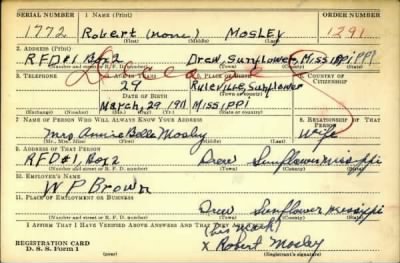 SERIAL NUMBER 1. NAME (Print) ORDER NUMBER
1772 Robert (none) MOSLEY 1291
(First) (Middle) (Last)
2. ADDRESS (Print)
RFD#1, Box 2 Drew, Sunflower, MISSIPPI
(Number and street or R. F. D. number) (Town) (County) (State)
3. TELEPHONE 4. AGE IN YEARS 5. PLACE OF BIRTH 6. COUNTRY OF CITIZENSHIP
29 Ruleville, Sunflower
DATE OF BIRTH (Town or county)
March, 29, 1911 MISSIPPI
(Exchange) (Number) (Mo.) (Day) (Yr.) (State or country)
7. NAME OF PERSON WHO WILL ALWAYS KNOW YOUR ADDRESS 8. RELATIONSHIP OF THAT PERSON
Mrs Annie Belle Mosley Wife
(Mr., Mrs., Miss) (First) (Middle) (Last)
9. ADDRESS OF THAT PERSON
RFD#1, Box 2 Drew Sunflower missippi
(Number and street or R. F. D. number) (Town) (County) (State)
10. EMPLOYER'S NAME
W P Brown
11. PLACE OF EMPLOYMENT OR BUSINESS
Drew Sunflower missippi
(Number and street or R. F. D. number) (Town) (County) (State)
I AFFIRM THAT I HAVE VERIFIED ABOVE ANSWERS AND THAT THEY ARE TRUE.
(his mark)
REGISTRATION CARD x Robert Mosley
D. S. S. Form 1 (Registrant's signature)